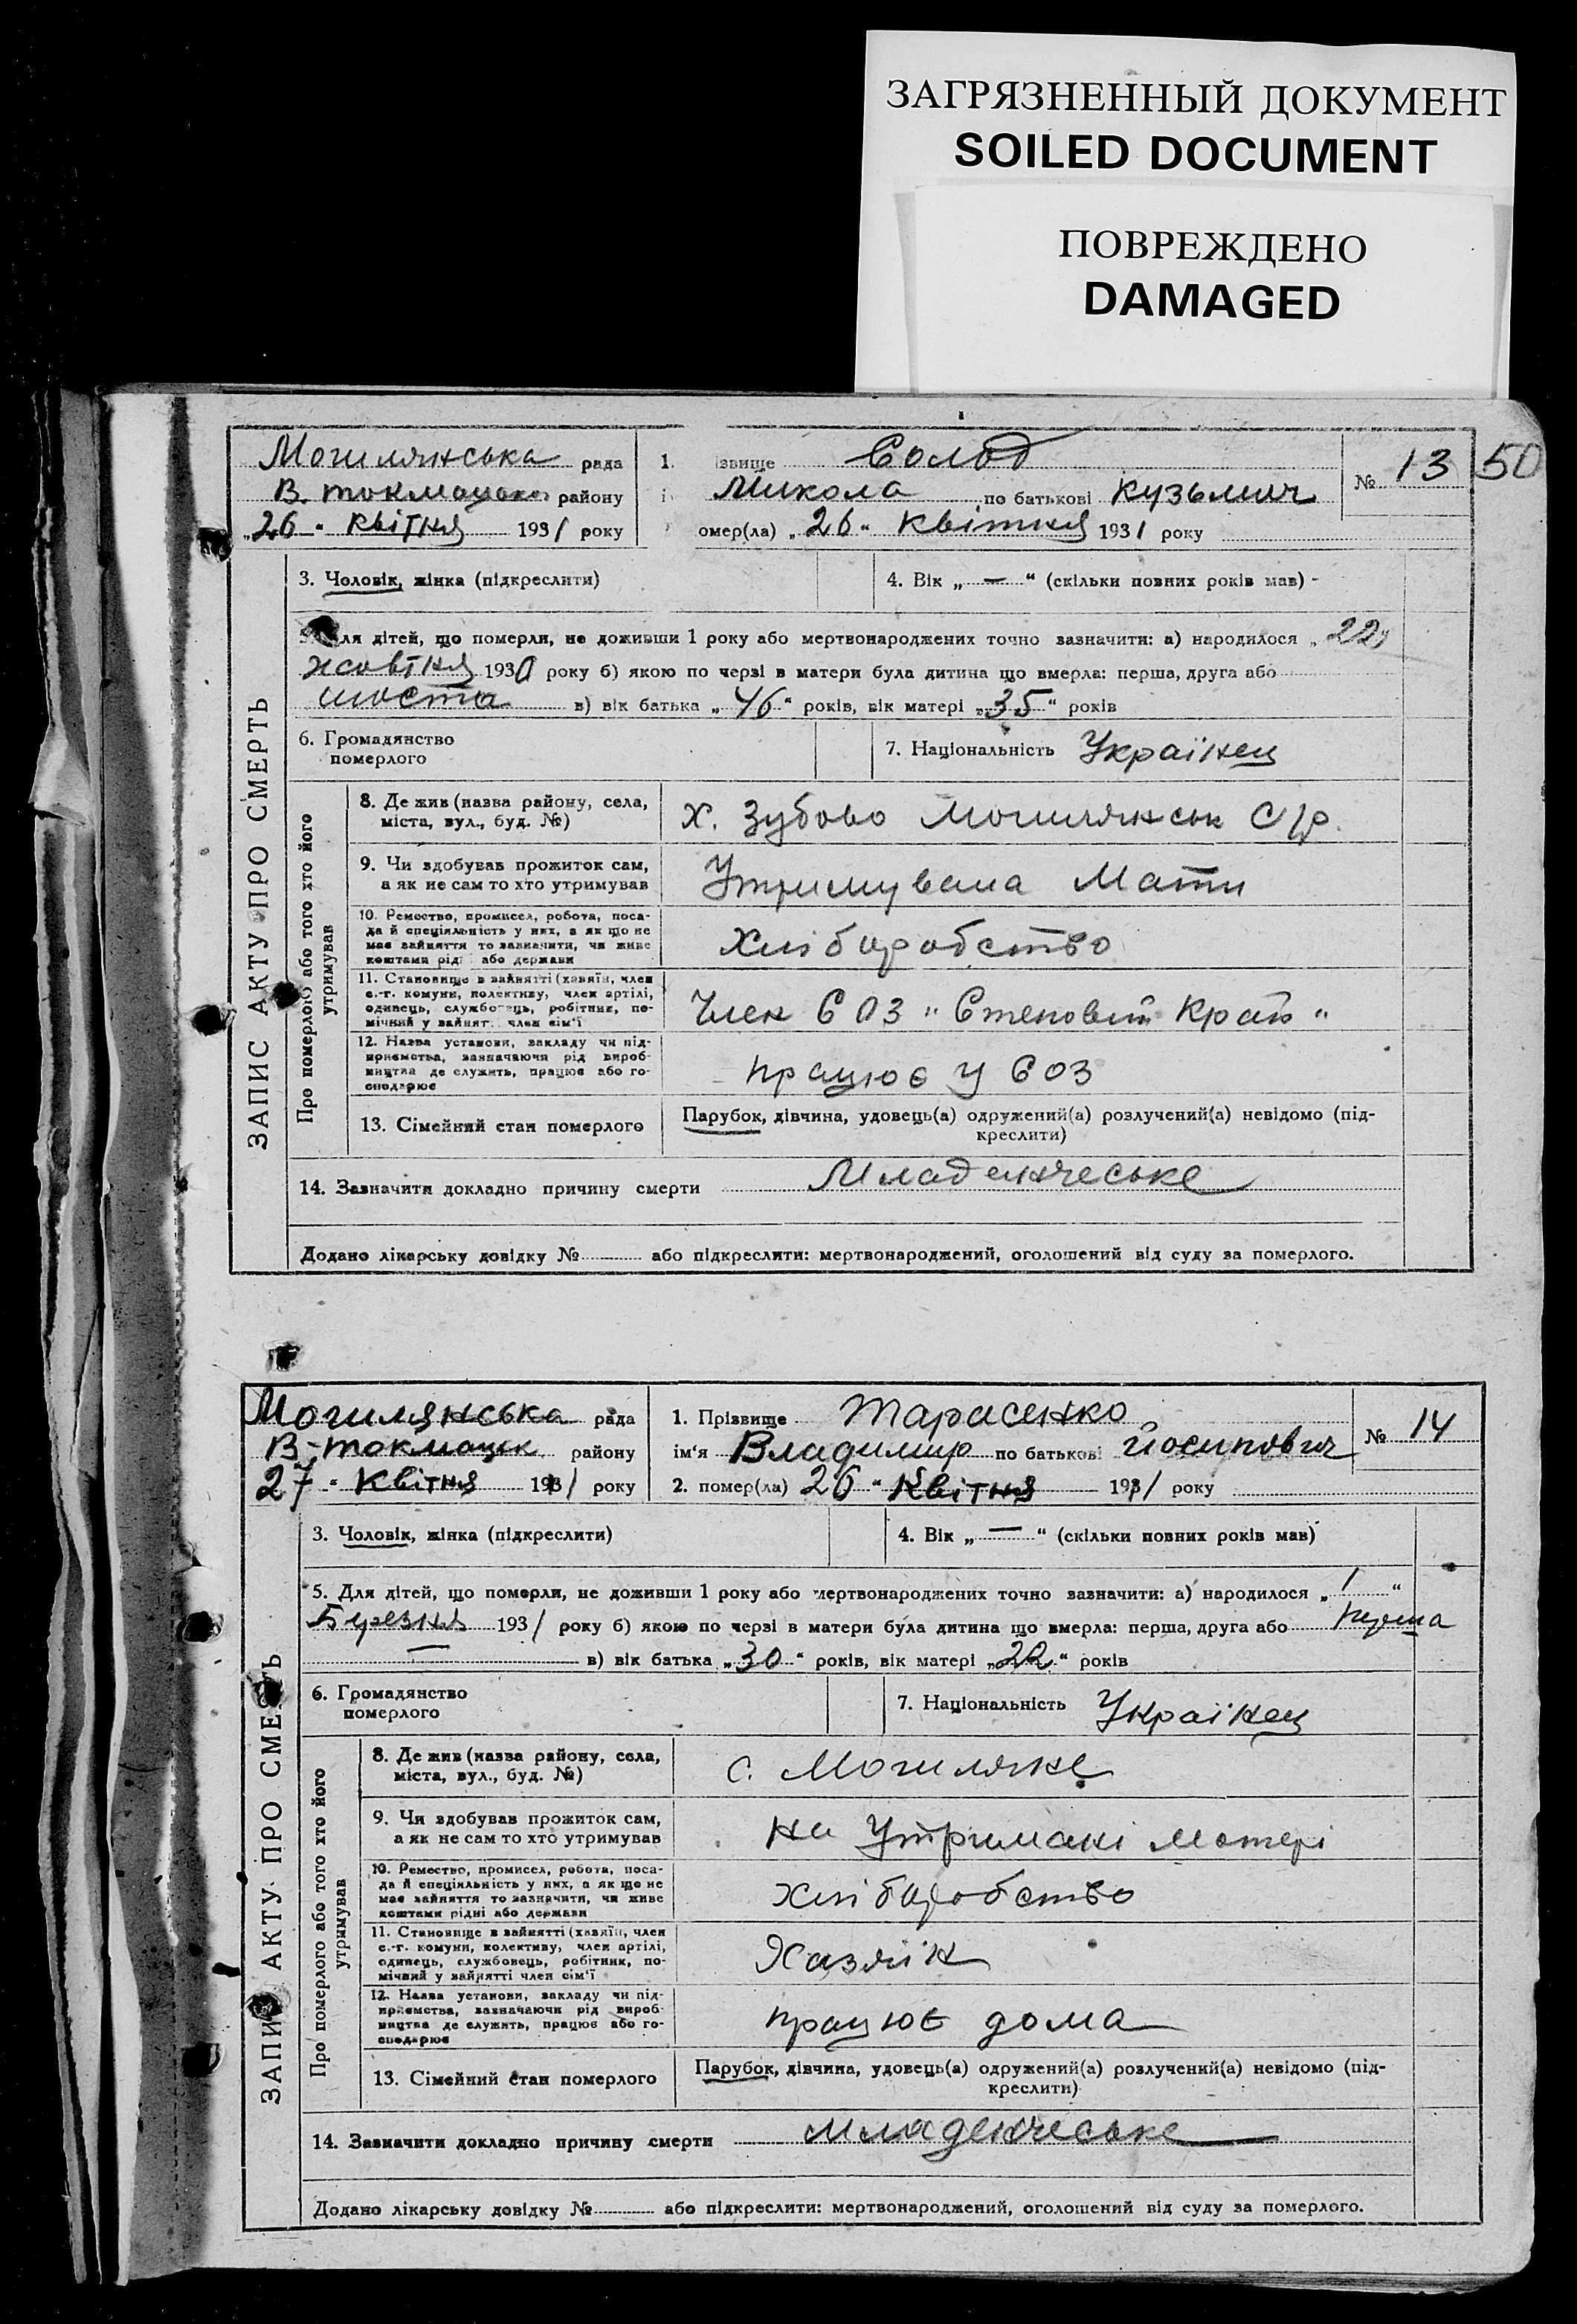 ЗАГРЯЗНЕННЫЙ ДОКУМЕНТ
SOILED DOCUMENT
ПОВРЕЖДЕНО
DAMAGED
50
ЗАПИС АКТУ ПРО СМЕРТЬ
Могилянська рада 1. ізвище Солод № 13
району Микола по батькові Кузьмич
„26“ квітня 1931 року омер(ла) „26“ квітня 1931 року
3. Чоловік, жінка (підкреслити) 4. Вік „—“ (скільки повних років мав)
ля дітей, що померли, не доживши 1 року або мертвонароджених точно зазначити: а) народилося „22“
жовтня 1930 року б) якою по черзі в матери була дитина що вмерла: перша, друга або
шоста в) вік батька „46“ років, вік матері „35“ років
6. Громадянство померлого 7. Національність Українец
Про померлого або того хто його утримував
8. Де жив (назва району, села,
міста, вул., буд. №) х. Зубово Могилянськ с/р.
9. Чи здобував прожиток сам,
а як не сам то хто утримував Утримувала Мати
10. Ремество, промисел, робота, поса-
да й спеціяльність у них, а як що не
має зайняття то зазначити, чи живе
коштами рід або держави Хліборобство
11. Становище в зайнятті (хазяїн, член
с.-г. комуни, колективу, член артілі,
одинець, службовець, робітник, по-
мічний у зайнят член сім'ї Член СОЗ „Степовий Край“
12. Назва установи, закладу чи під-
приємства, зазначаючи рід вироб-
ництва де служить, працює або го-
сподарює працює у СОЗ
13. Сімейний стан померлого Парубок, дівчина, удовець(а) одружений(а) розлучений(а) невідомо (під-
креслити)
14. Зазначити докладно причину смерти Младенческе
Додано лікарську довідку № або підкреслити: мертвонароджений, оголошений від суду за померлого.
ЗАПИС АКТУ ПРО СМЕРТЬ
Могилянська рада 1. Прізвище Тарасенко № 14
В-Токмацьк району ім'я Владимир по батькові Йосипович
27 “ квітня 1931 року 2. помер(ла) 26 “ квітня 1931 року
3. Чоловік, жінка (підкреслити) 4. Вік „—“ (скільки повних років мав)
5. Для дітей, що померли, не доживши 1 року або мертвонароджених точно зазначити: а) народилося „1“
Березня 1931 року б) якою по черзі в матери була дитина що вмерла: перша, друга або перша
— в) вік батька „30“ років, вік матері „22“ років
6. Громадянство померлого 7. Національність Українец
Про померлого або того хто його утримував
8. Де жив (назва району, села,
міста, вул., буд. №) с. Могиляне
9. Чи здобував прожиток сам,
а як не сам то хто утримував на утримані матері
10. Ремество, промисел, робота, поса-
да й спеціяльність у них, а як що не
має зайняття то зазначити, чи живе
коштами рідні або держави Хліборобство
11. Становище в зайнятті (хазяїн, член
с.-г. комуни, колективу, член артілі,
одинець, службовець, робітник, по-
мічний у зайнятті член сім'ї Хазяїн
12. Назва установи, закладу чи під-
приємства, зазначаючи рід вироб-
ництва де служить, працює або го-
сподарює працює дома
13. Сімейний стан померлого Парубок, дівчина, удовець(а) одружений(а) розлучений(а) невідомо (під-
креслити)
14. Зазначити докладно причину смерти младенческе
Додано лікарську довідку № або підкреслити: мертвонароджений, оголошений від суду за померлого.